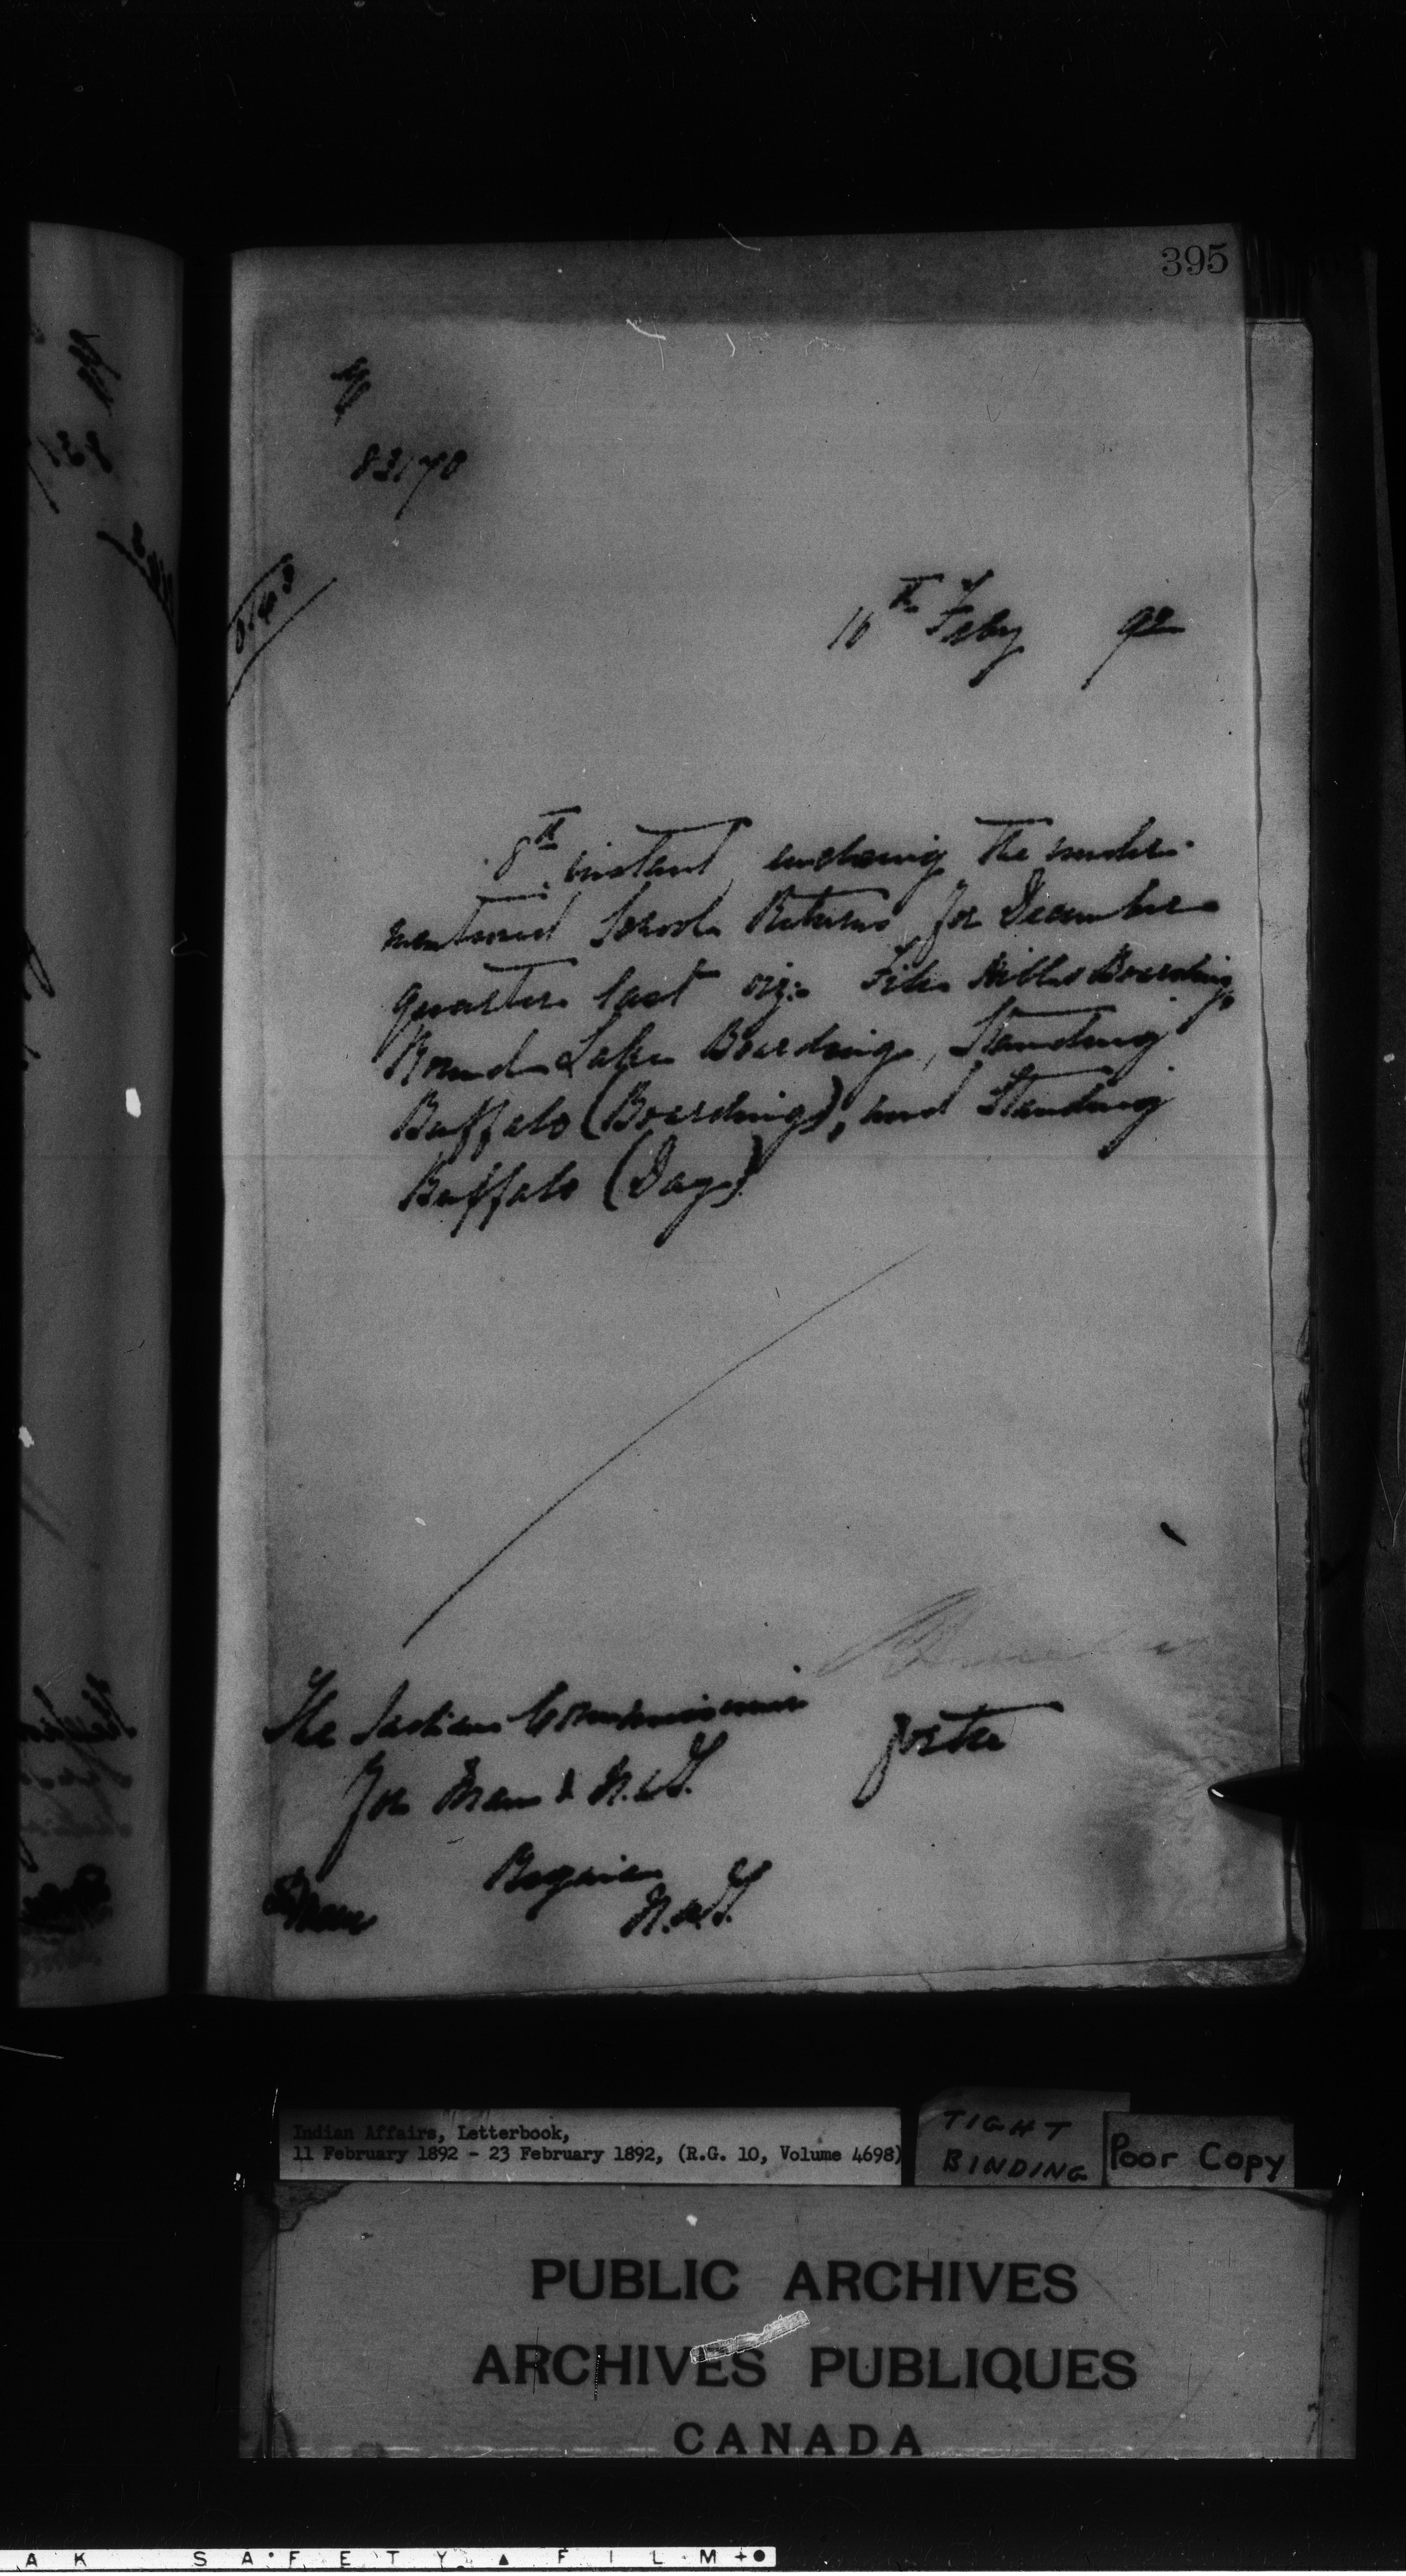 395
83170
16th Feby 92
8th instant enclosing the under-
mentioned School Returns for December
quarter last viz: File Hills Boarding,
Round Lake Boarding, Standing
Buffalo (Boarding), and Standing
Buffalo (Day)
The Indian Commissioner
for Man & N.W.T.
Regina
N.W.T.
Indian Affairs, Letterbook,
11 February 1892 - 23 February 1892, (R.G. 10, Volume 4698)
TIGHT
BINDING
Poor Copy
PUBLIC ARCHIVES
ARCHIVES PUBLIQUES
CANADA
AK SAFETY FILM